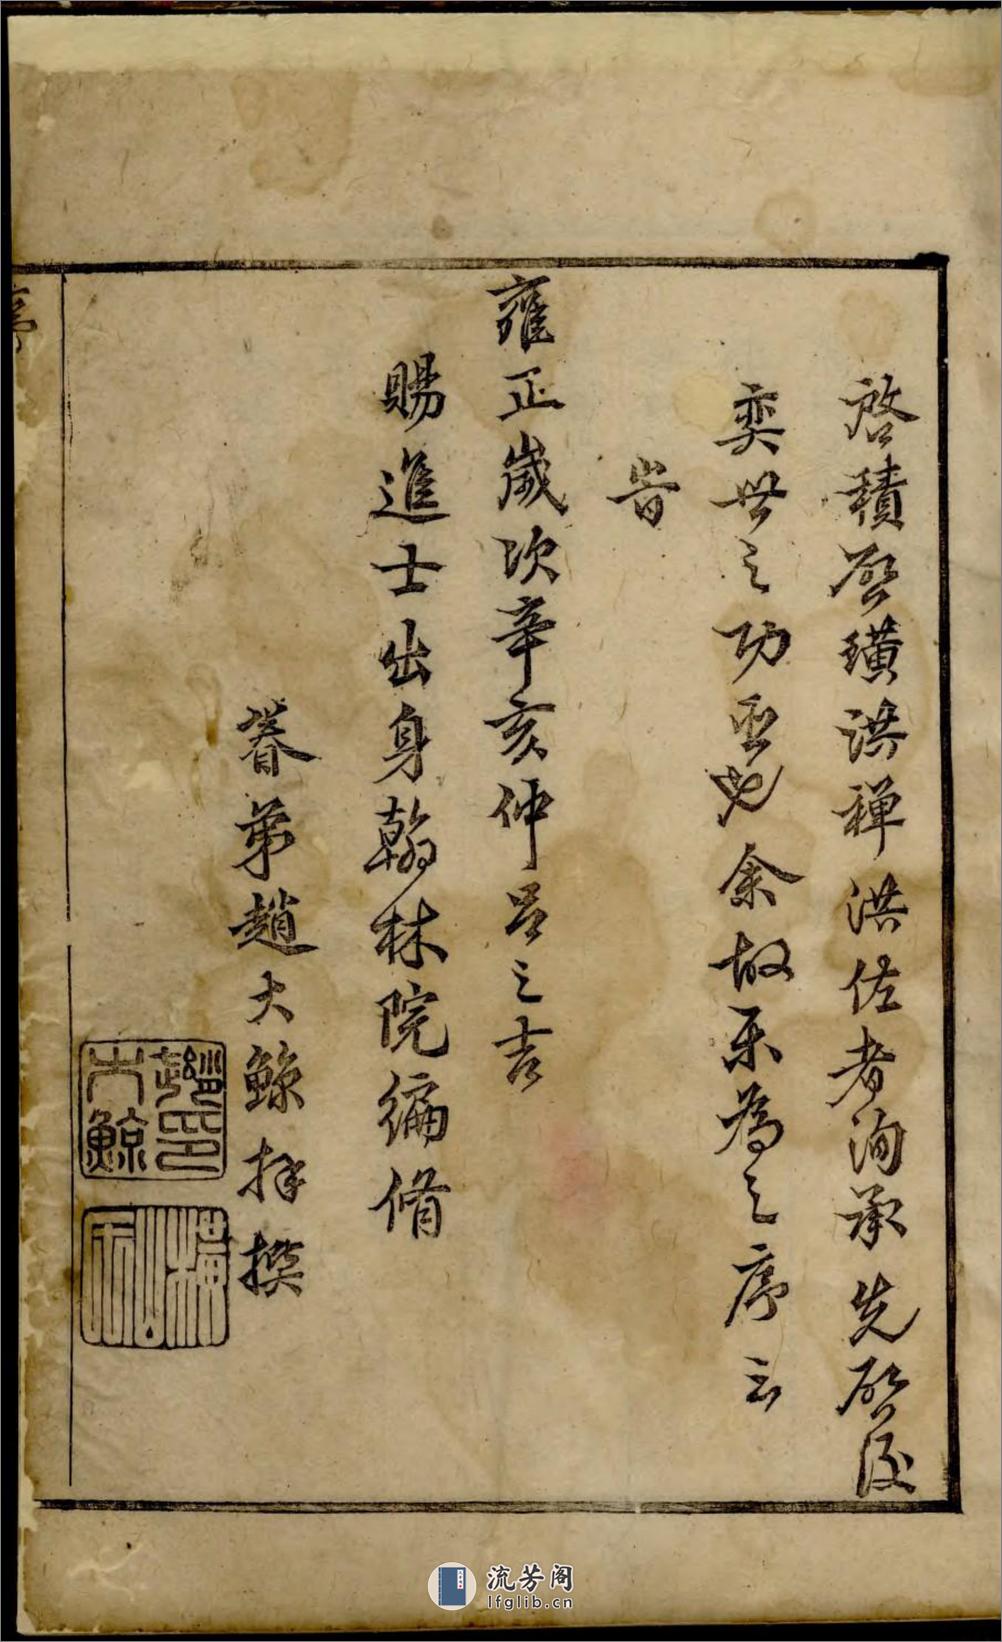 啓積啓璜洪禪洪佐者洵承先啓後
奕世之功臣也余故乐為之序云
旹
雍正歲次辛亥仲呂之吉
賜進士出身翰林院編修
眷弟趙大鯨拜撰
趙印大鯨
序
流芳阁
lfglib.cn